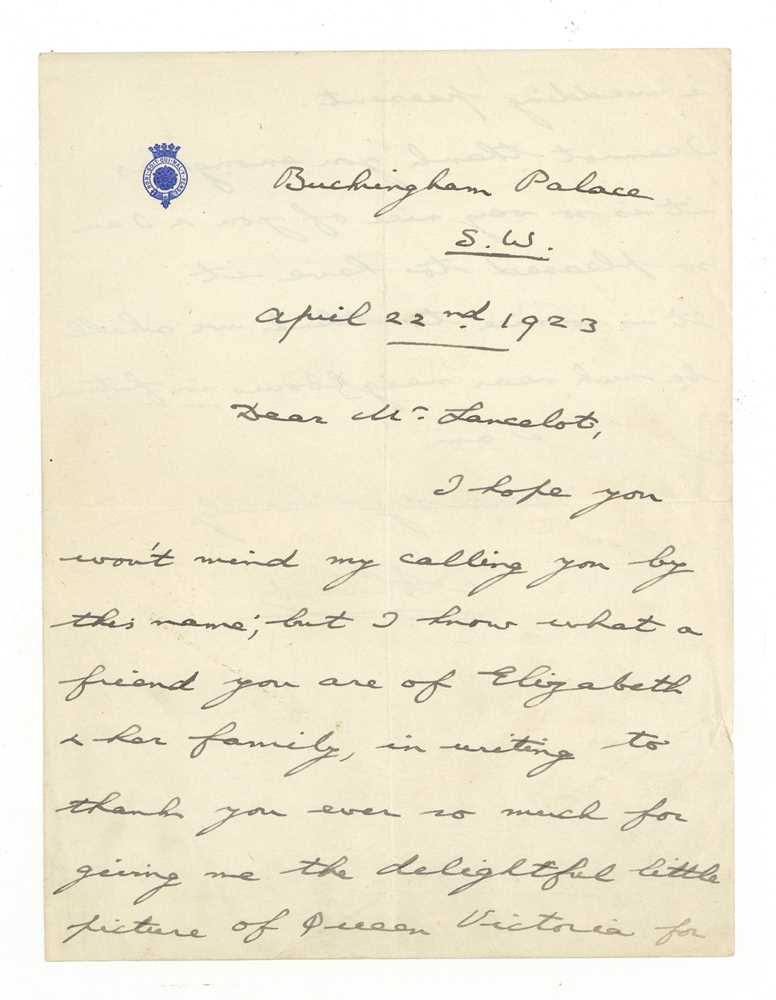 HONI·SOIT·QUI·MAL·Y·PENSE
Buckingham Palace
S.W.
April 22nd. 1923
Dear Mr Lancelot,
I hope you
won't mind my calling you by
this name', but I know what a
friend you are of Elizabeth
& her family, in writing to
thank you ever so much for
giving me the delightful little
picture of Queen Victoria for